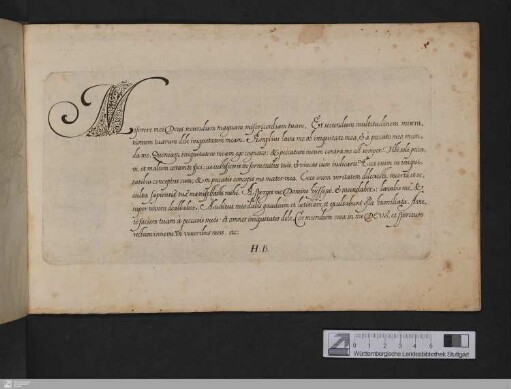 Miserere mei Deus secundum magnam misericordiam tuam. Et secundum multitudinem misera,
tionum tuarum dele iniquitatem meam. Amplius laua me ab iniquitate mea, & a peccato meo mun
da me. Quoniam iniquitatem meam ego cognosco: & peccatum meum contra me est semper. Tibi soli pecca
ui, et malum coram te feci: ut iustificeris in sermonibus tuis, & vincas cum iudicaris. Ecce enim in iniqui,
tatibus conceptus sum: & in peccatis concepit me mater mea. Ecce enim veritatem dilexisti, incerta, et oc,
culta sapientiæ tuæ manifestasti mihi. Asperges me Domine hyssopo, & mundabor: lauabis me, &
super niuem dealbabor. Auditui meo dabis gaudium et lætitiam, et exultabunt ossa humiliata. Auer,
te faciem tuam a peccatis meis: & omnes iniquitates dele. Cor mundum crea in me DEUS, et spiritum
rectum innoua in visceribus meis. etc.
H. B.
0 1 2 3 4 5
Württembergische Landesbibliothek Stuttgart